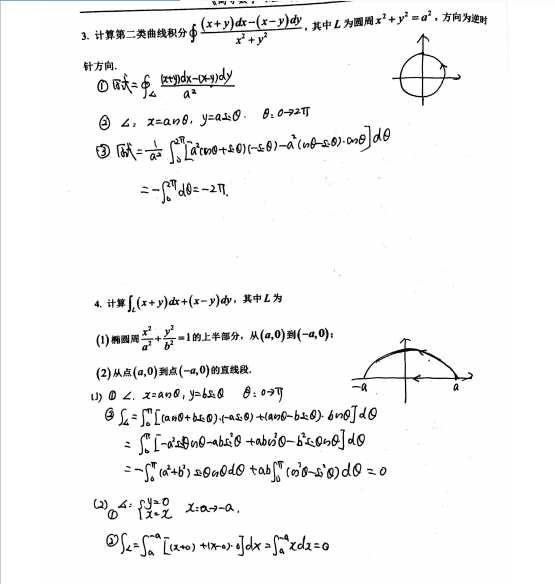 3. 计算第二类曲线积分∮ (x+y)dx-(x-y)dy / x²+y² ，其中 L 为圆周 x²+y²=a²，方向为逆时
针方向.
① 原式=∮_L (x+y)dx-(x-y)dy / a²
② L: x=acosθ, y=asinθ. θ:0→2π
③ 原式=1/a² ∫₀^{2π}[a²(cosθ+sinθ)(-sinθ)-a²(cosθ-sinθ)·cosθ]dθ
=-∫₀^{2π}dθ=-2π.
4. 计算∫_L(x+y)dx+(x-y)dy，其中 L 为
(1)椭圆周 x²/a² + y²/b² =1的上半部分，从(a,0)到(-a,0)；
(2)从点(a,0)到点(-a,0)的直线段.
-a a
(1) ① L. x=acosθ, y=bsinθ θ:0→π
② ∫_L=∫₀^π[(acosθ+bsinθ)·(-asinθ)+(acosθ-bsinθ)·bcosθ]dθ
=∫₀^π[-a²sinθcosθ-absin²θ+abcos²θ-b²sinθcosθ]dθ
=-∫₀^π(a²+b²)sinθcosθdθ+ab∫₀^π(cos²θ-sin²θ)dθ=0
(2) ① L: {y=0 x=x x:a→-a,
② ∫_L=∫_a^{-a}[(x+0)+(x-0)·0]dx=∫_a^{-a}xdx=0